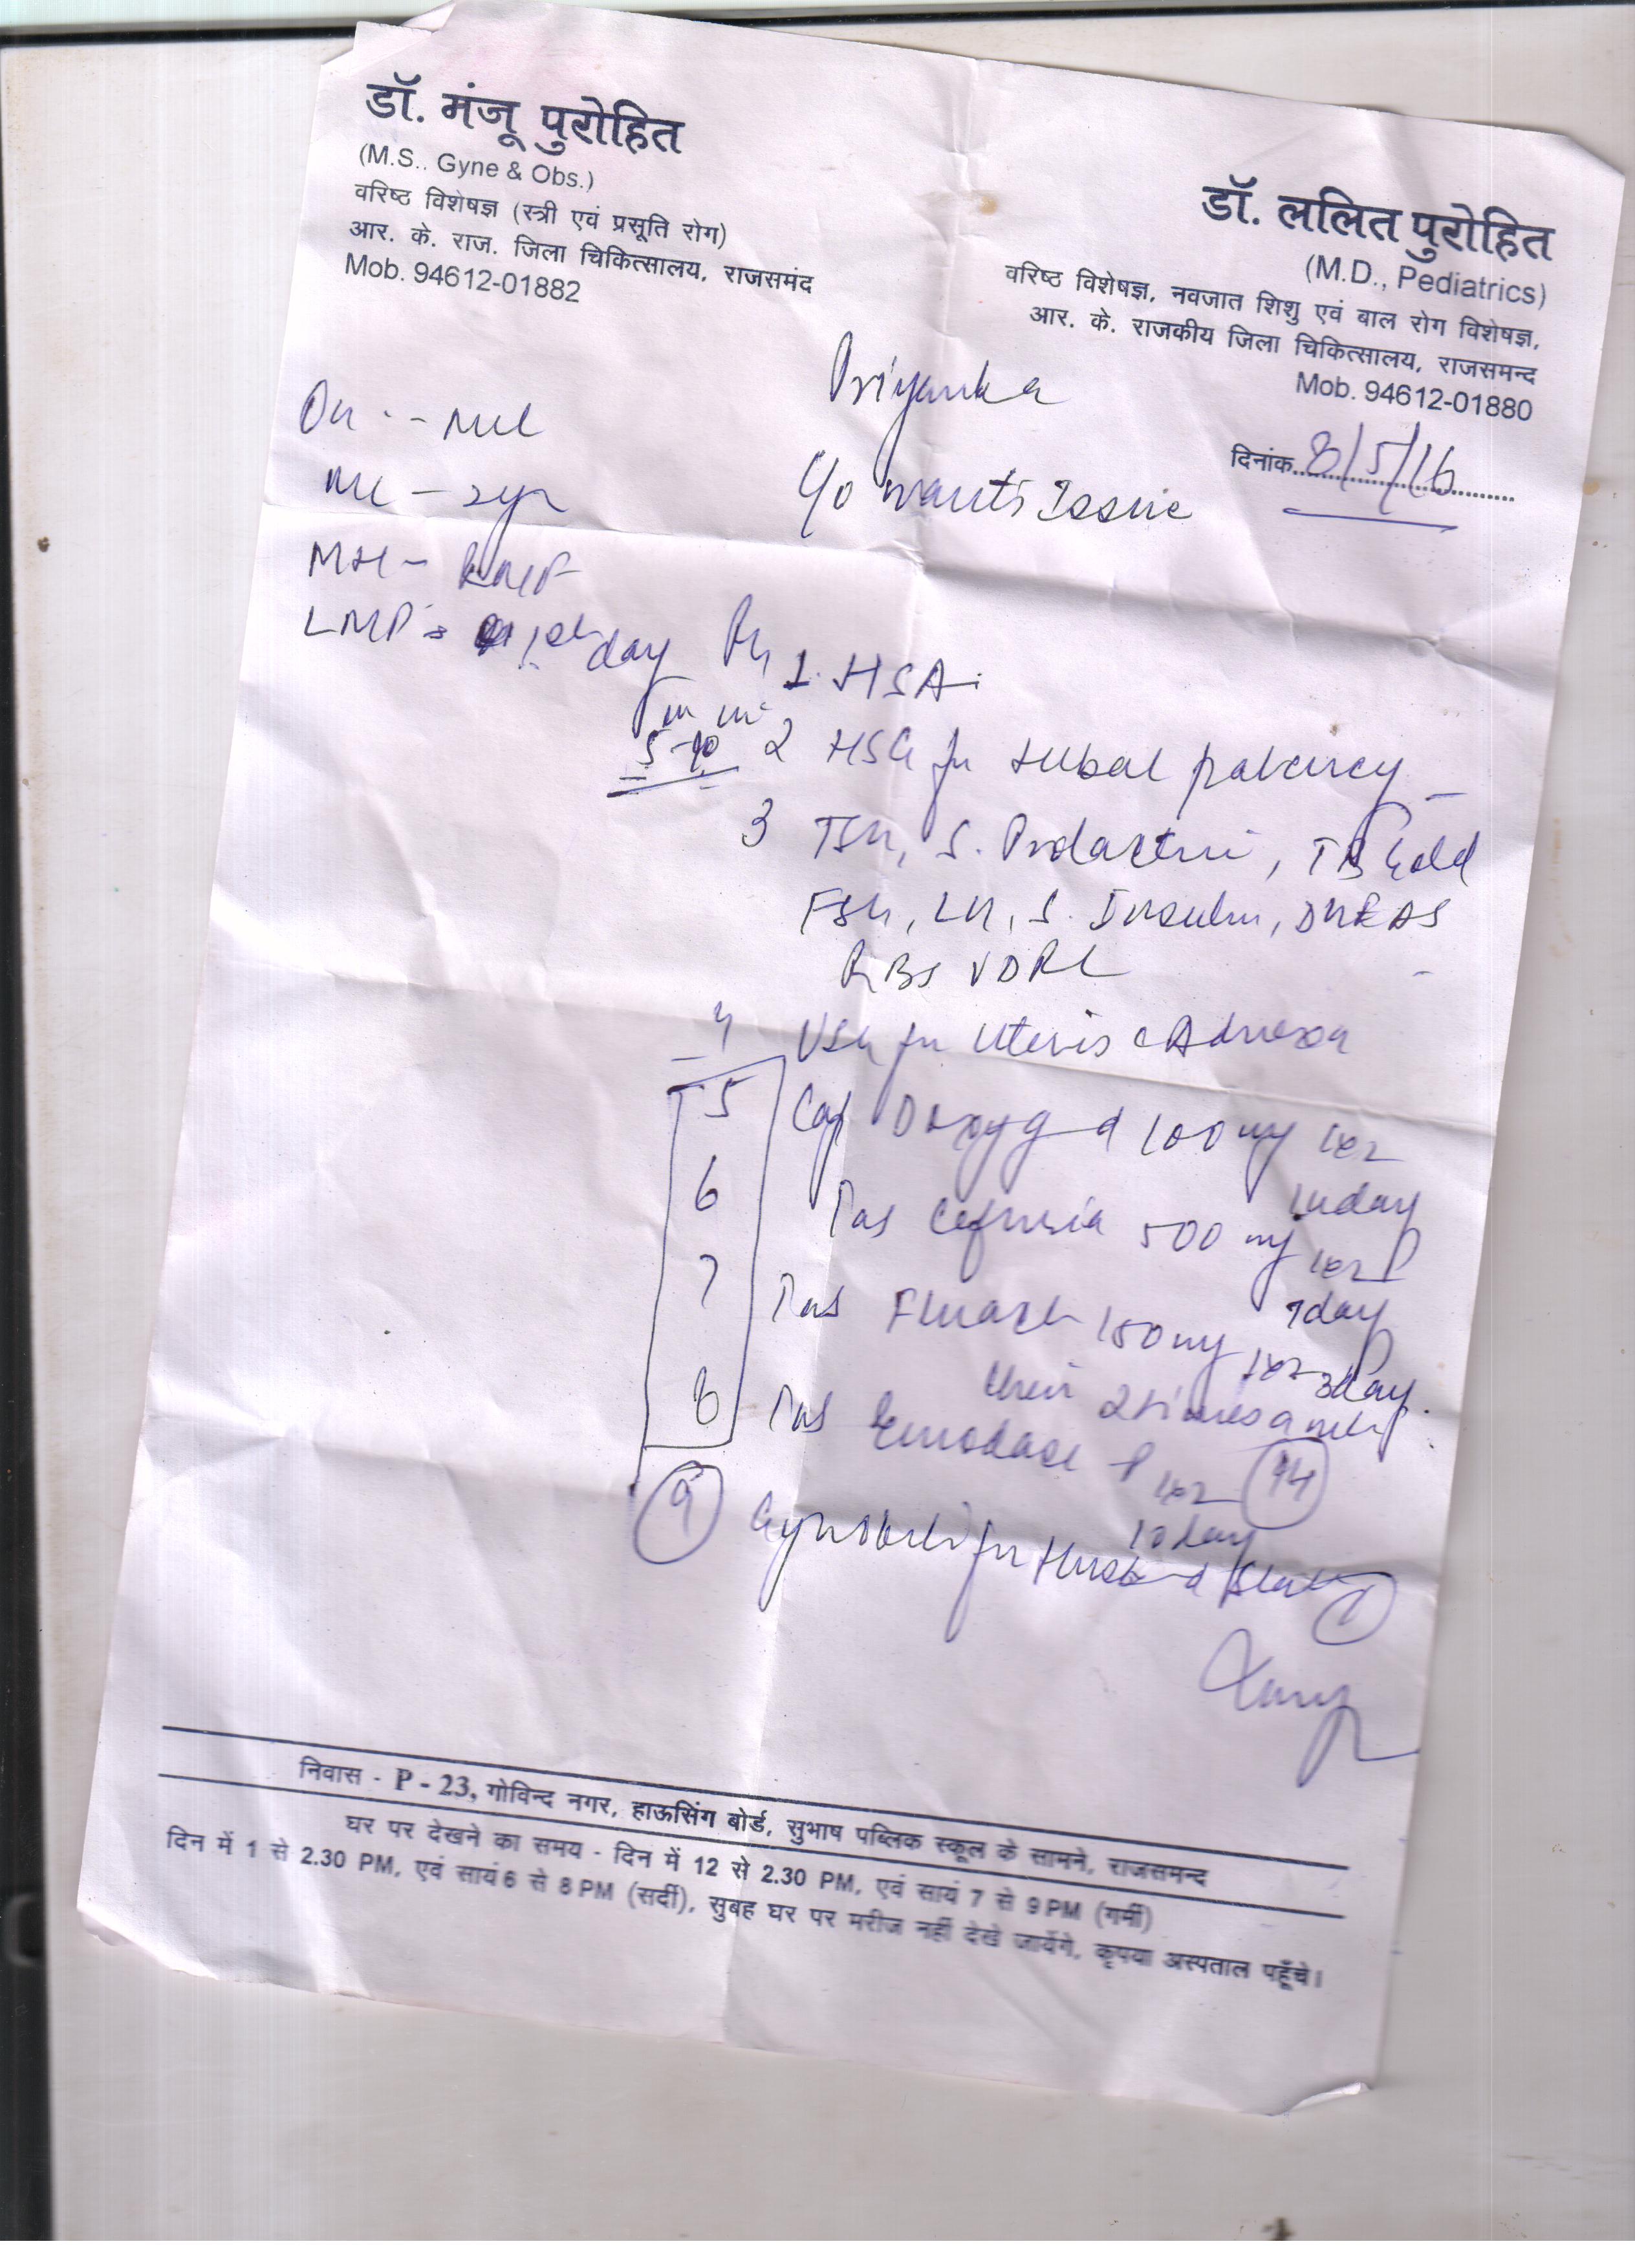 डॉ. मंजू पुरोहित
(M.S.. Gyne & Obs.)
वरिष्ठ विशेषज्ञ (स्त्री एवं प्रसूति रोग)
आर. के. राज. जिला चिकित्सालय, राजसमंद
Mob. 94612-01882
डॉ. ललित पुरोहित
(M.D., Pediatrics)
वरिष्ठ विशेषज्ञ, नवजात शिशु एवं बाल रोग विशेषज्ञ,
आर. के. राजकीय जिला चिकित्सालय, राजसमन्द
Mob. 94612-01880
दिनांक 8/5/16
Priyanka
c/o wants Issue
MH -
LMP day
1. HSA
5-10
2 HSG for tubal patency
3 TSH, S. Prolactin, TB Gold
FSH, LH, S. Insulin, DHEAS
RBS VDRL
4 USG for Uterus c Adnexa
5 Cap 100 mg
6 Tab 500 mg
7 day
7 Tab 150 mg 3day
then 2 times a
8 Tab 14
10 day
9 for Husband
निवास - P - 23, गोविन्द नगर, हाऊसिंग बोर्ड, सुभाष पब्लिक स्कूल के सामने, राजसमन्द
घर पर देखने का समय - दिन में 12 से 2.30 PM, एवं सायं 7 से 9 PM (गर्मी)
दिन में 1 से 2.30 PM, एवं सायं 6 से 8 PM (सर्दी), सुबह घर पर मरीज नहीं देखे जायेंगे, कृपया अस्पताल पहूँचे।